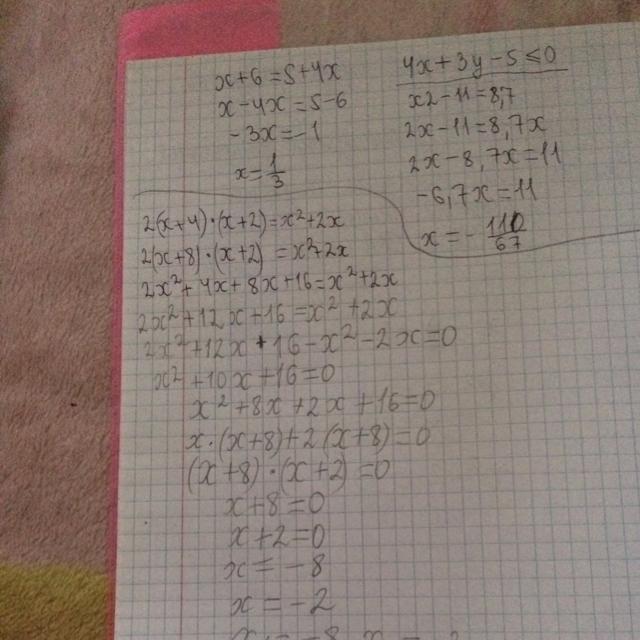 x+6=5+4x
x-4x=5-6
-3x=-1
x=1/3
4x+3y-5≤0
x2-11=8,7
2x-11=8,7x
2x-8,7x=11
-6,7x=11
x=-110/67
2(x+4)·(x+2)=x²+2x
2(x+8)·(x+2)=x²+2x
2x²+4x+8x+16=x²+2x
2x²+12x+16=x²+2x
2x²+12x+16-x²-2x=0
x²+10x+16=0
x²+8x+2x+16=0
x·(x+8)+2(x+8)=0
(x+8)·(x+2)=0
x+8=0
x+2=0
x=-8
x=-2